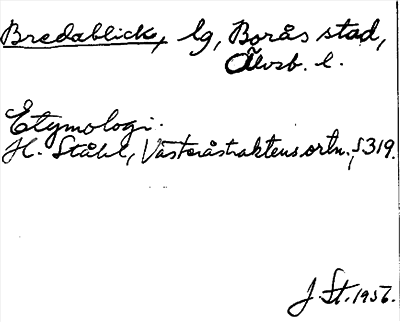 Bredablick, lg, Borås stad,
Älvsb. l.
Etymologi.
H. Ståhl, Västeråstraktens ortn., s 319.
J. St. 1956.